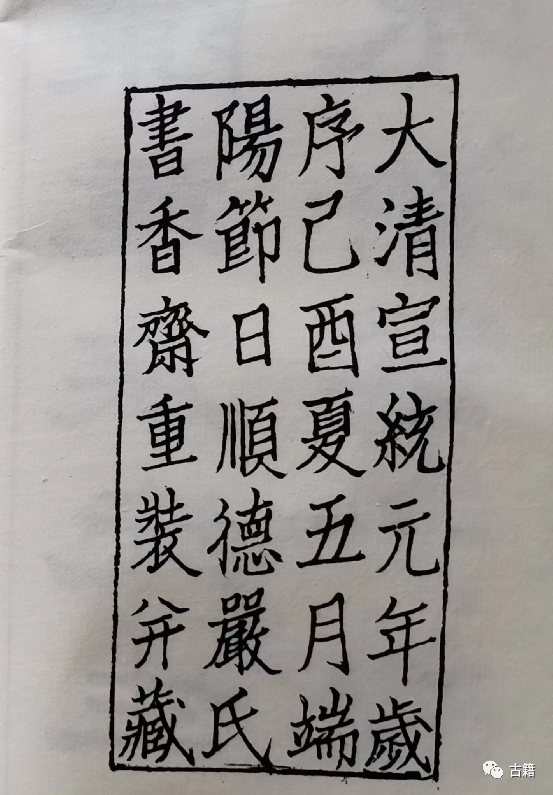 大清宣統元年歲
序己酉夏五月端
陽節日順德嚴氏
書香齋重裝并藏
古籍